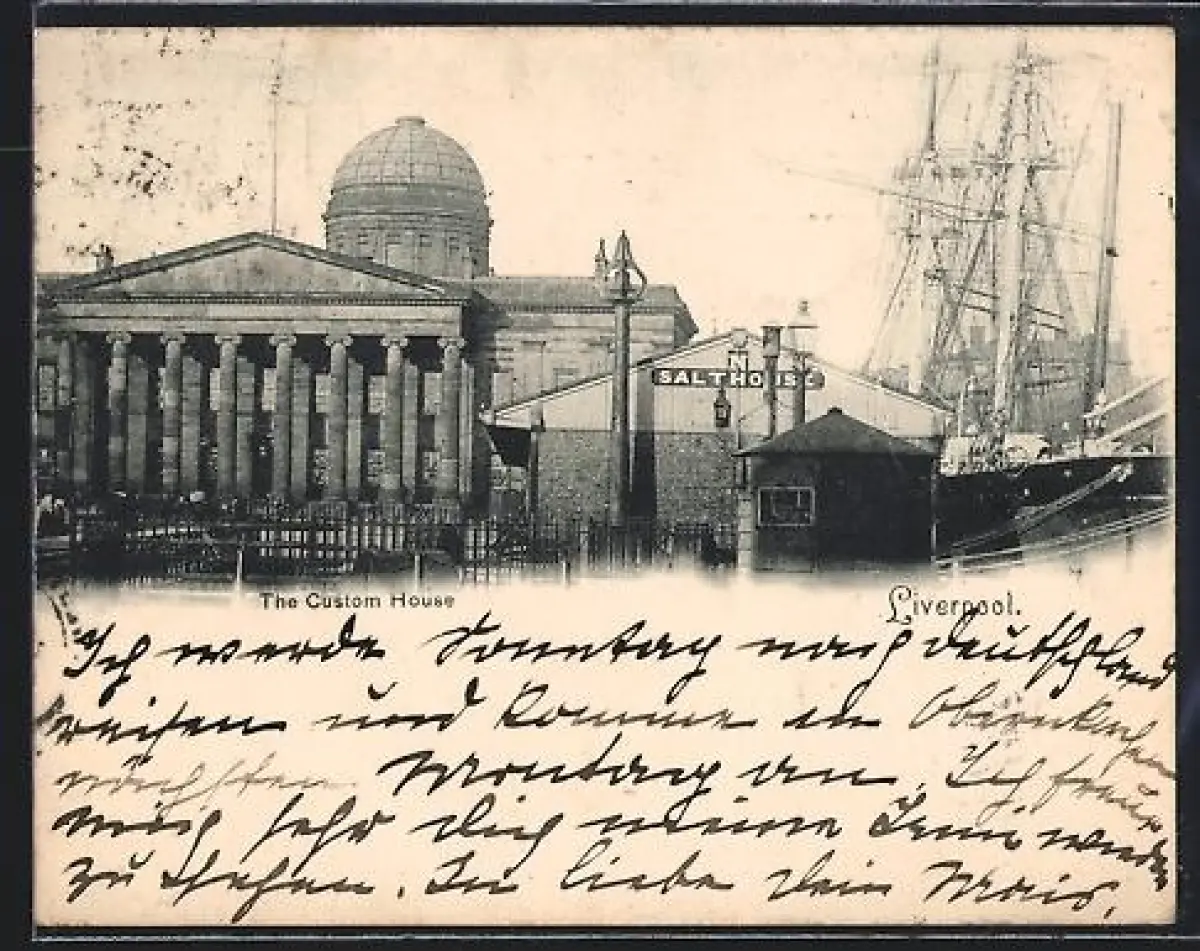 N
SALTHOUSE
The Custom House
Liverpool.
Ich werde Sonntag nach Deutschland
reisen und komme in
nächsten Montag an. Ich freue
mich sehr dich meine wieder
zu sehen. In Liebe Dein